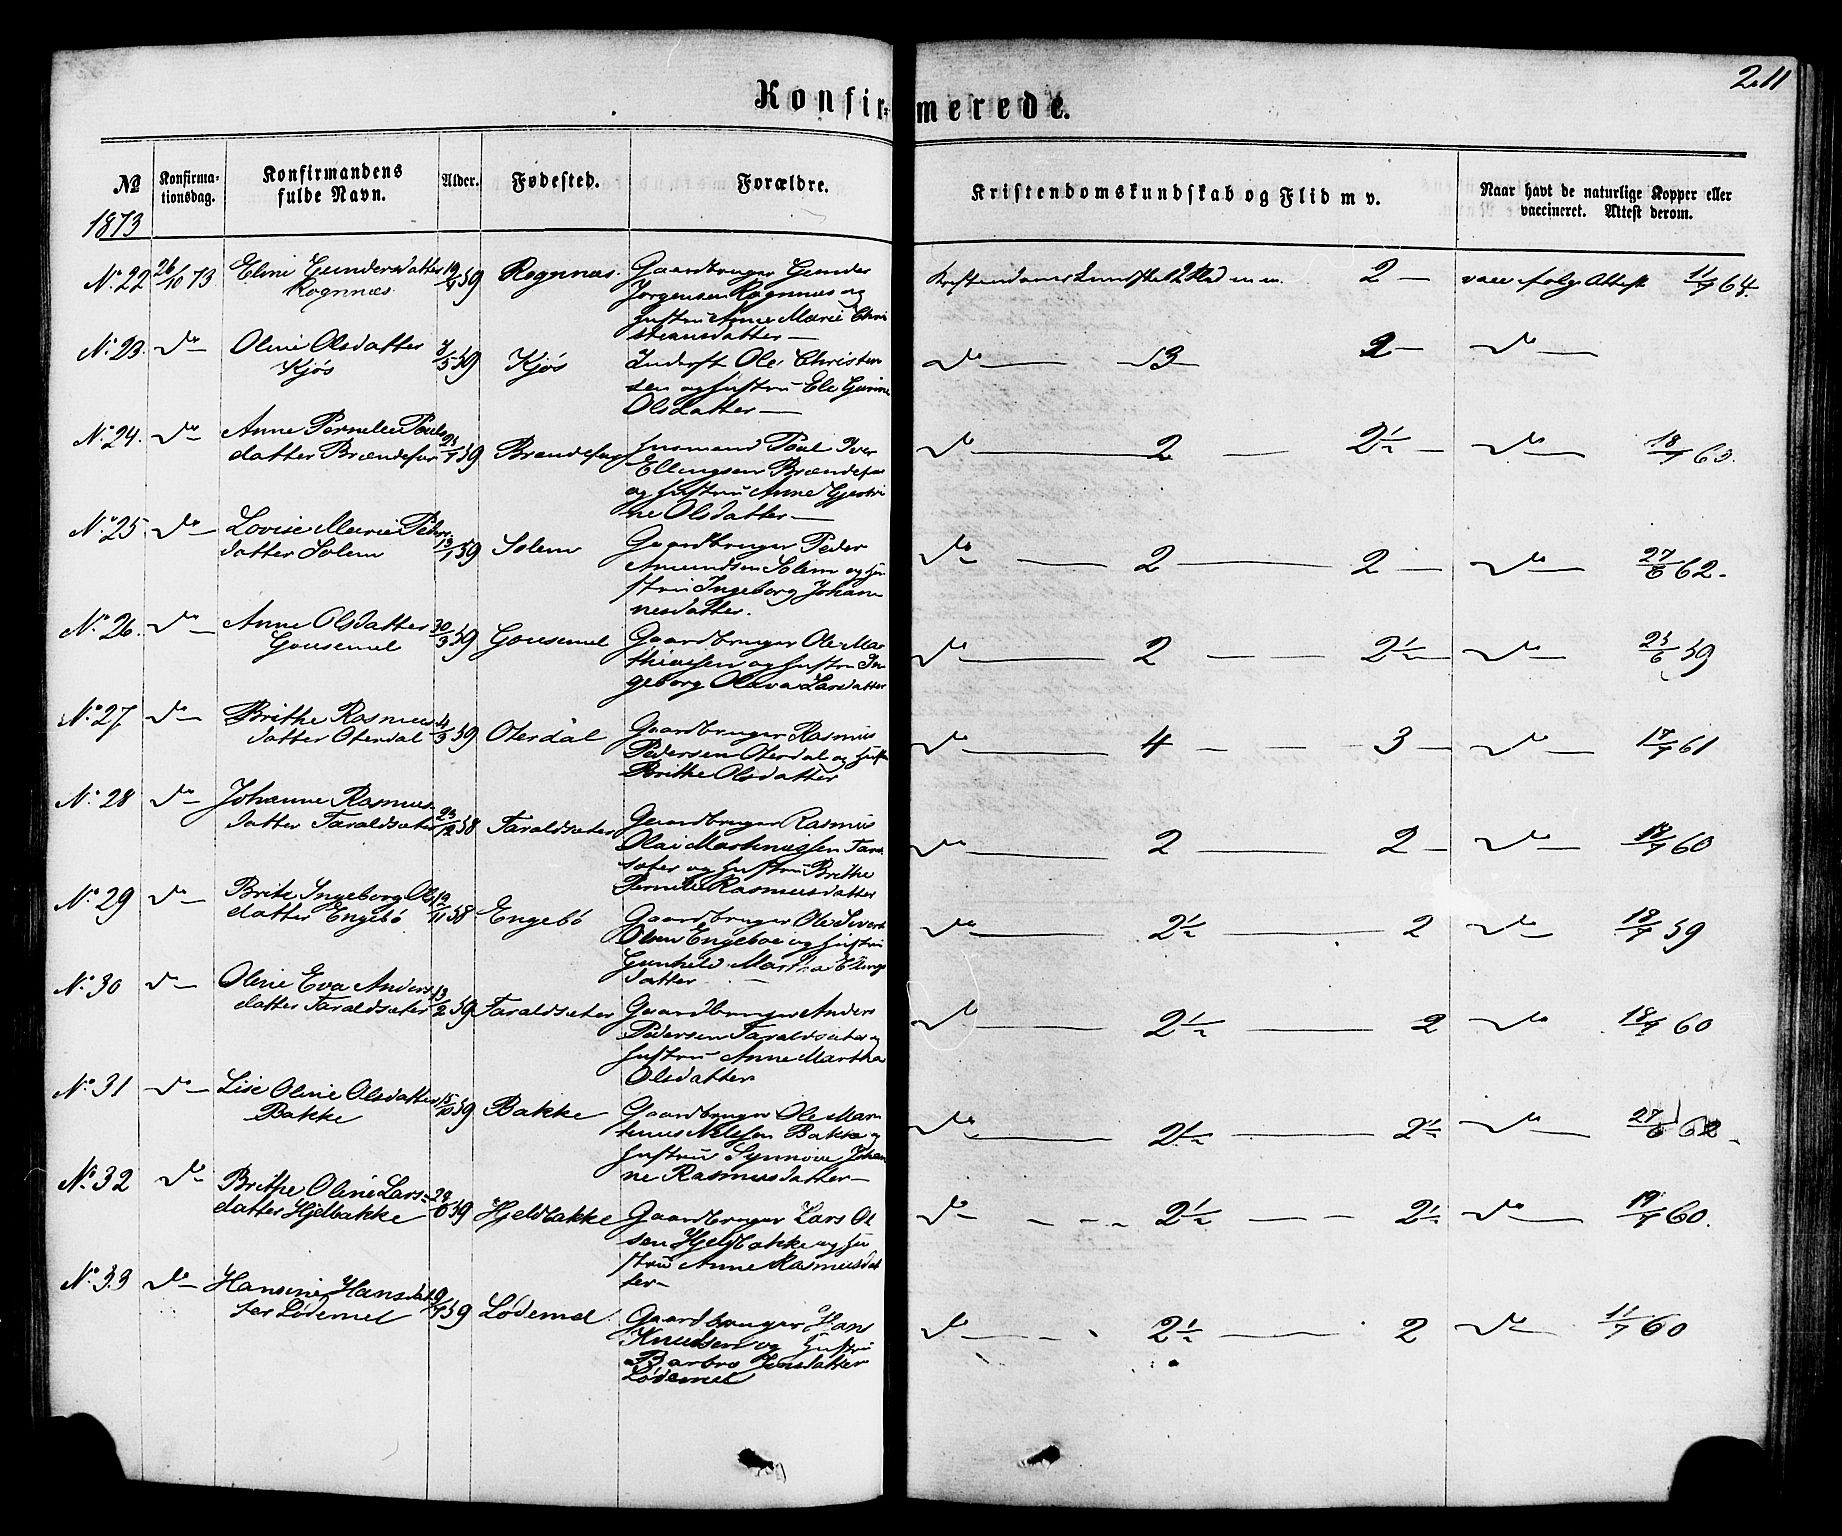 211
Konfirmerede.
№
Konfirma-
tionsdag.
Konfirmandens
fulde Navn.
Alder.
Fødested.
Forældre.
Kristendomskundskab og Flid m v.
Naar havt de naturlige Kopper eller
vaccineret. Attest derom.
1873
No 22 26/10 73 Eline Gundersdatter 59 Rognnæs. Gaardbruger Gunder
Rognnæs Jørgensen Rognnæs og
Hustru Anne Marie Chri
stiansdatter
2 — vacc ifølge Attest 11/9 64.
No 23. do Oline Olsdatter 59 Kjøs Inderst Ole Christen
Kjøs sen og Hustru Ele Gurine
Olsdatter
do 3 2 do
No 24. do Anne Pernele Pouls
datter Brændefur 59 Husmand Poul Iver
Ellingsen
og Hustru Anne
ne Olsdatter
do 2 2½ do 18/9
No 25. do Lovise Marie Peders
datter Solem 13/1 59 Solem Gaardbruger Peder
Amundsen Solem og Hu
stru Ingeborg Johan
nesdatter.
do 2 2 do 27/6 62.
No 26. do Anne Olsdatter 30/3 59 Gausemel Gaardbruger Ole Ma
thiesen og Hustru In
geborg Olava Larsdatter
do 2 2½ do 59
No 27 do Brithe Rasmus
datter Oterdal 4/3 59 Oterdal Gaardbruger Rasmus
Pedersen Oterdal og Hustr
Brithe Olsdatter
do 4 3 do 61
No 28 do Johanne Rasmus
datter Taraldsæter 23/12 58 Taraldsæter Gaardbruger Rasmus
Olai
sæter og Hustru Brithe
Pernele Rasmusdatter
do 2 2 do 60
No 29 do Brite Ingeborg Ols
datter Engebö 58 Engebö Gaardbruger Ole Sivert
Olsen Engeboe og Hustru
Gunhild Martha Ellings
datter
do 2½ 2 do 18/9 59
No 30 do Oline Eva Anders
datter Taraldsæter 13/2 59 Taraldsæter Gaardbruger Anders
Pedersen Taraldsæter og
Hustru Anne Martha
Olsdatter
do 2½ 2 do 18/9 60
No 31 do Lise Oline Olsdatter 59 Bakke Gaardbruger Ole Mar
Bakke tinus Nilsen Bakke og
Hustru Synnøve Johan
ne Rasmusdatter
do 2½ 2½ do 27/6
No 32 do Brithe Oline Lars-
datter Hjelbakke 59 Hjelbakke Gaardbruger Lars Ol
sen Hjelbakke og Hu
stru Anne Rasmusdat
ter
do 2½ 2½ do 60.
No 33 do Hansine Hansdat
ter Lødemel 59 Lødemel Gaardbruger Hans
Knudsen og Hustru
Barbro Jonsdatter
Lødemel
do 2½ 2 do 11/7 60